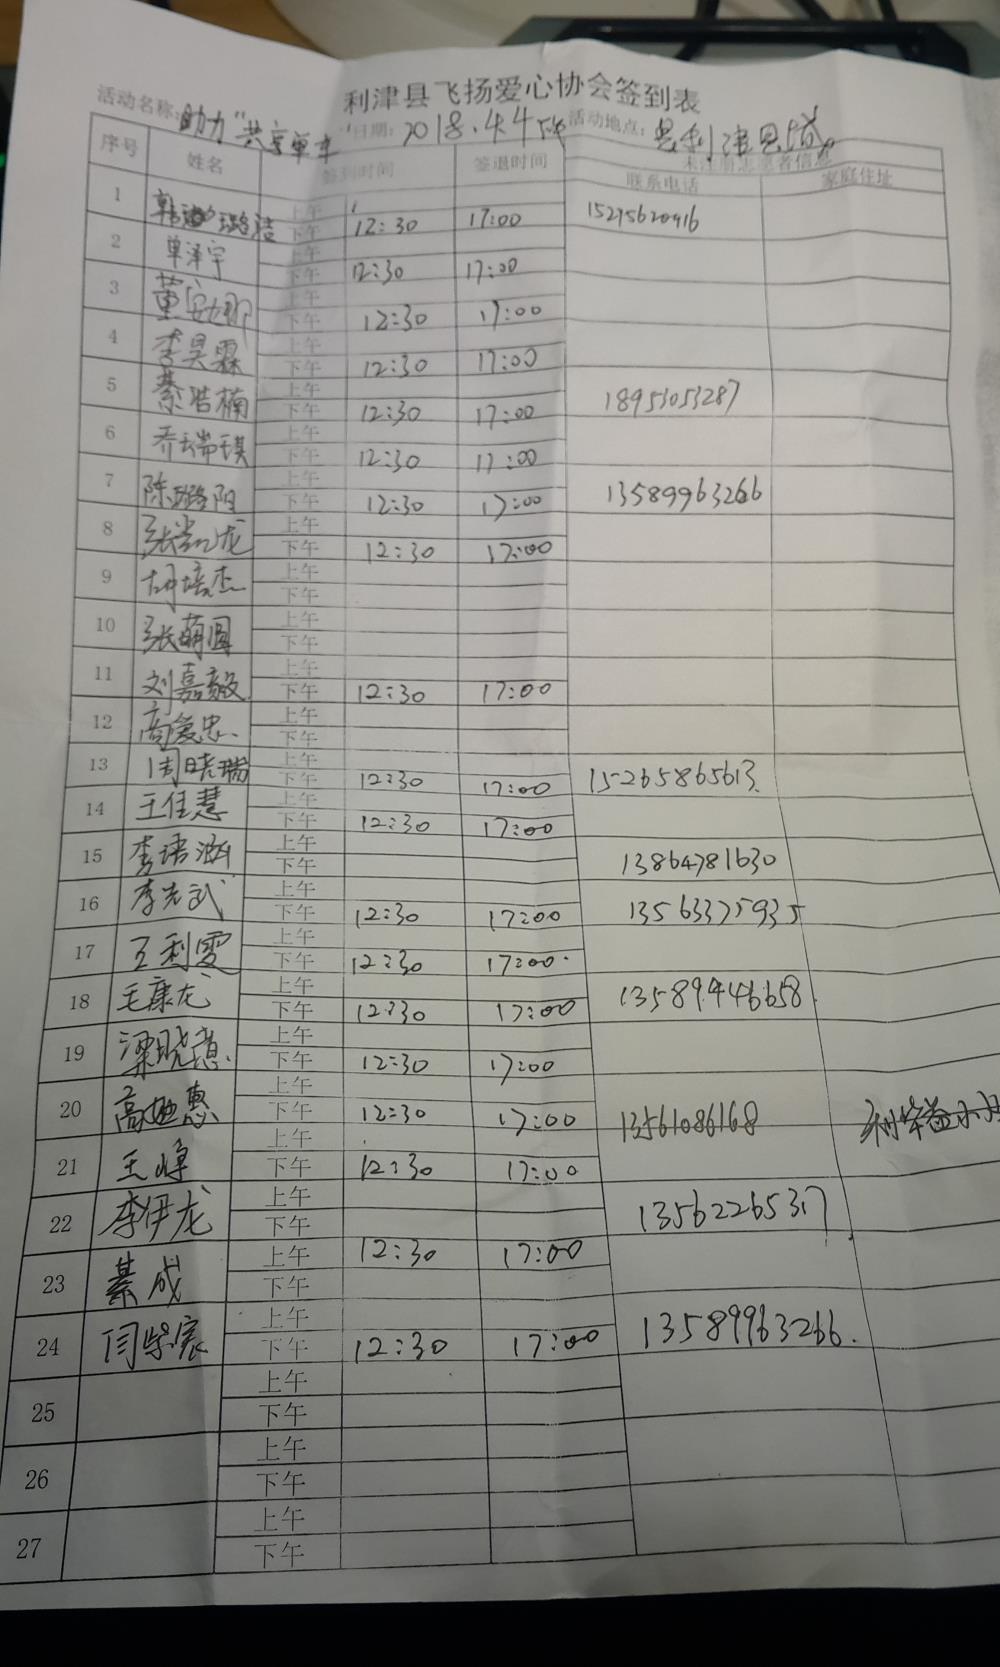 利津县飞扬爱心协会签到表
活动名称：助力“共享单车” 日期：2018.4.4下午 活动地点：利津县城。
序号 姓名 签到时间 签退时间 未注册志愿者信息
联系电话 家庭住址
1 韩 璐洁 上午
下午 12:30 17:00 15275620916
2 单泽宇 上午
下午 12:30 17:00
3 董安娜 上午
下午 12:30 17:00
4 李昊霖 上午
下午 12:30 17:00
5 綦浩楠 上午 18953053287
下午 12:30 17:00
6 乔瑞琪 上午
下午 12:30 17:00
7 陈璐阳 上午 13589963266
下午 12:30 17:00
8 张凯龙 上午
下午 12:30 17:00
9 胡培杰 上午
下午
10 张萌圆 上午
下午
11 刘嘉毅 上午
下午 12:30 17:00
12 高爱忠 上午
下午
13 周晓瑞 上午 15265865613
下午 12:30 17:00
14 王佳慧 上午
下午 12:30 17:00
15 李语涵 上午 13864781630
下午
16 李光武 上午
下午 12:30 17:00 13563375935
17 王利雯 上午
下午 12:30 17:00
18 毛康龙 上午 13589446658
下午 12:30 17:00
19 梁晓意 上午
下午 12:30 17:00
20 高 惠 上午
下午 12:30 17:00 13561086168
21 王峥 上午
下午 12:30 17:00
22 李伊龙 上午 13562265317
下午
23 綦成 上午 12:30 17:00
下午
24 闫紫宸 上午 13589963266.
下午 12:30 17:00
25 上午
下午
26 上午
下午
27 上午
下午